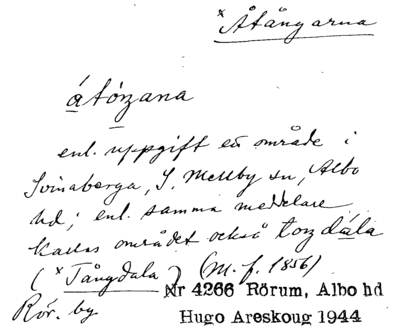 × Åtångarna
åtóŋana
enl. uppgift ett område i
Svinaberga, S. Mellby sn, Albo
hd; enl. samma meddelare
kallas området också toŋdála
(× Tångdala) (M. f. 1856)
Rör. by
Nr 4266 Rörum, Albo hd
Hugo Areskoug 1944